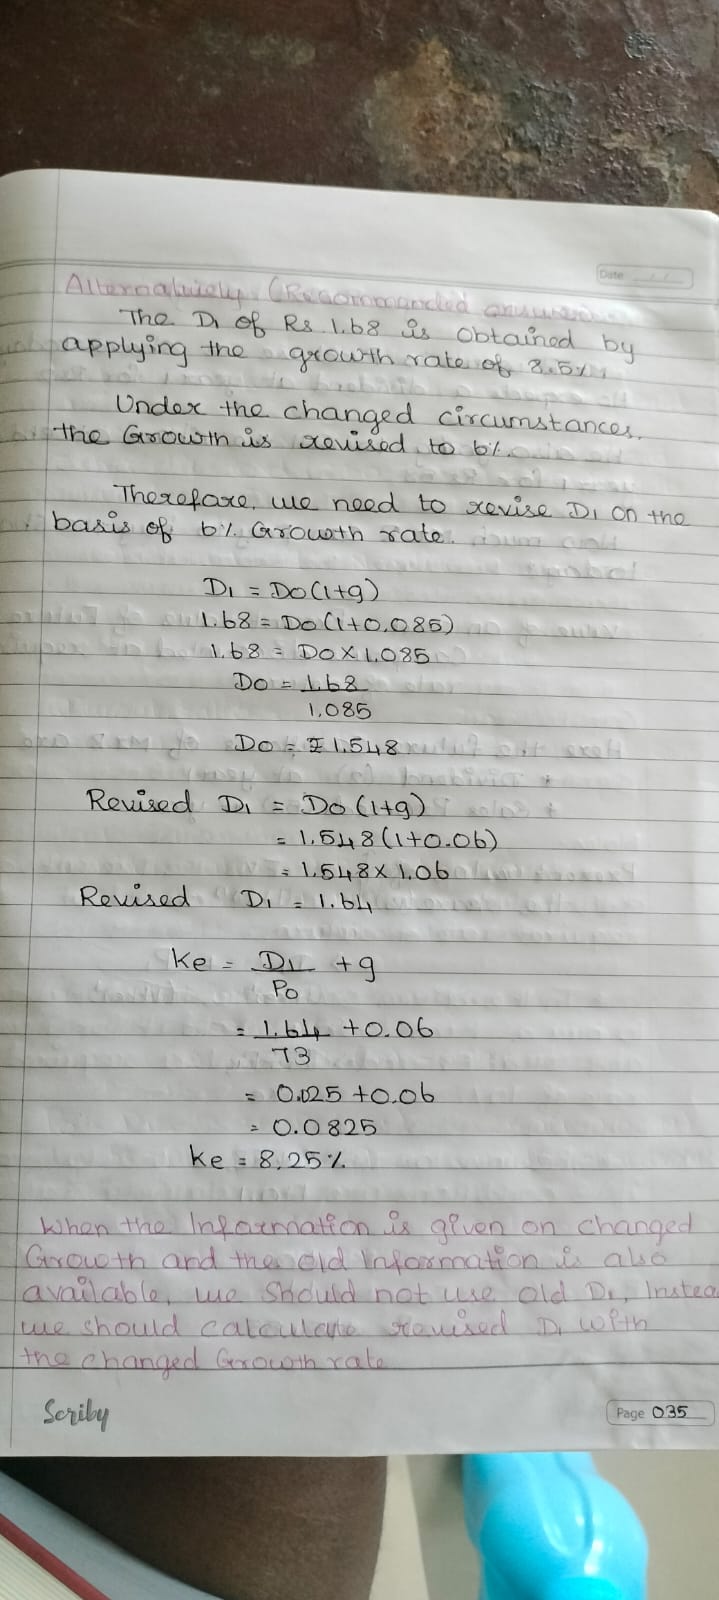 Date
Alternatively (Recommended answer)
The D1 of Rs 1.68 is obtained by
applying the growth rate of 8.5%.
Under the changed circumstances,
the Growth is revised to 6%.
Therefore, we need to revise D1 on the
basis of 6% Growth rate.
D1 = D0(1+g)
1.68 = D0(1+0.085)
1.68 = D0 × 1.085
D0 = 1.68
1.085
D0 = ₹ 1.548
Revised D1 = D0(1+g)
= 1.548(1+0.06)
= 1.548 × 1.06
Revised D1 = 1.64
Ke = D1 + g
P0
= 1.64 + 0.06
73
= 0.025 + 0.06
= 0.0825
Ke = 8.25%
When the Information is given on changed
Growth and the old Information is also
available, we should not use old D1, Instea
we should calculate revised D1 with
the changed Growth rate
Scriby
Page 035